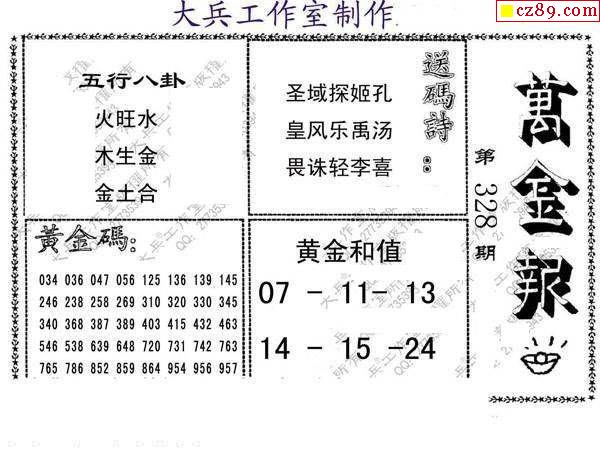 大兵工作室制作
cz89.com
五行八卦
火旺水
木生金
金土合
送碼詩:
圣域探姬孔
皇风乐禹汤
畏诛轻李喜
萬金報
第328期
黄金碼:
034 036 047 056 125 136 139 145
246 238 258 269 310 320 330 346
340 368 387 389 403 415 432 463
546 538 639 648 720 731 742 763
765 786 852 859 864 954 956 957
黄金和值
07 - 11- 13
14 - 15 -24